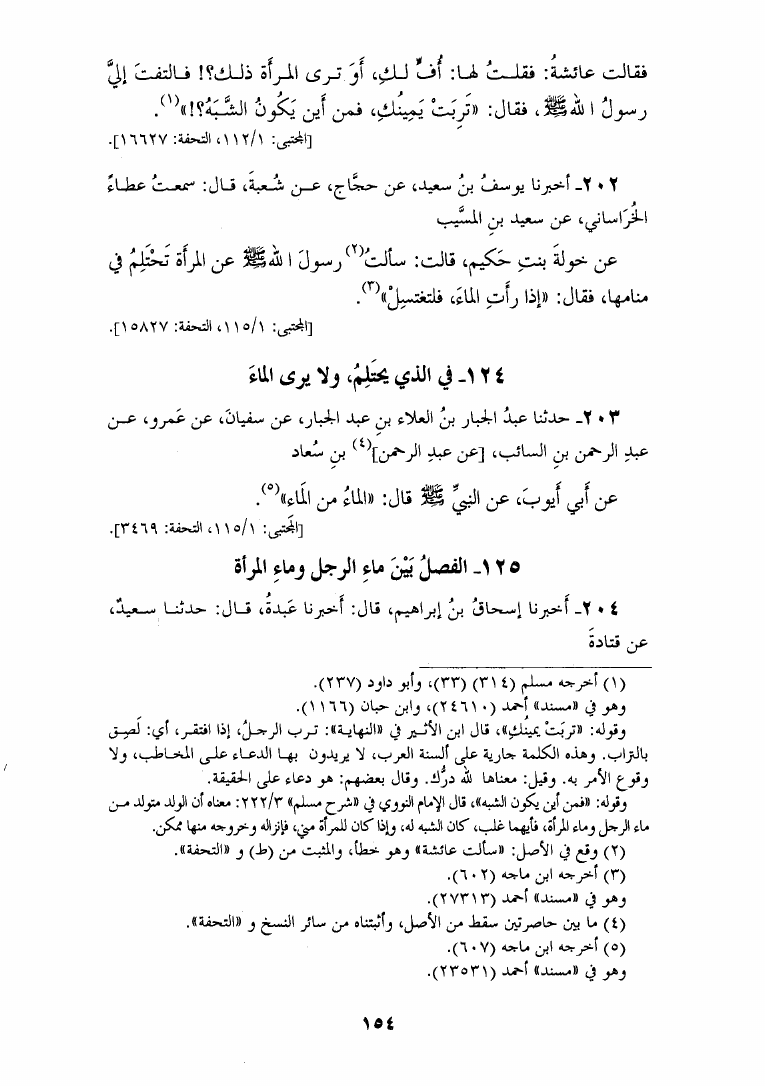 فقالت عائشةُ: فقلـتُ لهـا: أُفٍّ لـكِ، أَوَ تـرى المـرأة ذلـك؟! فـالتفتَ إليَّ
رسولُ اللهِ ﷺ، فقال: «تَرِبَتْ يَمِينُكِ، فمن أَين يَكُونُ الشَّبَهُ؟!»(١).
[المجتبى: ١١٢/١، التحفة: ١٦٦٢٧].
٢٠٢ـ أخبرنا يوسفُ بنُ سعيد، عن حجَّاج، عـن شُعبةَ، قـال: سمعـتُ عطـاءً
الخُرَاساني، عن سعيد بنِ المسيَّب
عن خولةَ بنتِ حَكيم، قالت: سألتُ(٢) رسولَ اللهِ ﷺ عن المرأة تَحْتَلِمُ في
منامها، فقال: «إذا رأَتِ الماءَ، فلتغتسِلْ»(٣).
[المجتبى: ١١٥/١، التحفة: ١٥٨٢٧].
١٢٤ـ في الذي يحتَلِمُ، ولا يرى الماءَ
٢٠٣ـ حدثنا عبدُ الجبار بنُ العلاء بنِ عبد الجبار، عن سفيانَ، عن عَمرو، عـن
عبدِ الرحمن بنِ السائب، [عن عبدِ الرحمن](٤) بنِ سُعاد
عن أَبي أَيوبَ، عن النبيِّ ﷺ قال: «الماءُ من الَماءِ»(٥).
[المجتبى: ١١٥/١، التحفة: ٣٤٦٩].
١٢٥ـ الفصلُ بَيْنَ ماءِ الرجل وماءِ المرأة
٢٠٤ـ أخبرنا إسحاقُ بنُ إبراهيم، قال: أخبرنا عَبدةُ، قـال: حدثنـا سـعيدٌ،
عن قتادةَ
(١) أخرجه مسلم (٣١٤) (٣٣)، وأبو داود (٢٣٧).
وهو في «مسند» أحمد (٢٤٦١٠)، وابن حبان (١١٦٦).
وقوله: «تربَتْ يمينُكِ»، قال ابن الأثـير في «النهايـة»: تـرب الرجـلُ، إذا افتقـر، أي: لَصِـق
بالتراب. وهذه الكلمة جارية على ألسنة العرب، لا يريدون بهـا الدعـاء علـى المخـاطب، ولا
وقوع الأمر به. وقيل: معناها لله درُّك. وقال بعضهم: هو دعاء على الحقيقة.
وقوله: «فمن أين يكون الشبه»، قال الإمام النووي في «شرح مسلم» ٢٢٢/٣: معناه أن الولد متولد مـن
ماء الرجل وماء المرأة، فأيهما غلب، كان الشبه له، وإذا كان للمرأة مني، فإنزاله وخروجه منها ممكن.
(٢) وقع في الأصل: «سألت عائشة» وهو خطأ، والمثبت من (ط) و «التحفة».
(٣) أخرجه ابن ماجه (٦٠٢).
وهو في «مسند» أحمد (٢٧٣١٣).
(٤) ما بين حاصرتين سقط من الأصل، وأثبتناه من سائر النسخ و «التحفة».
(٥) أخرجه ابن ماجه (٦٠٧).
وهو في «مسند» أحمد (٢٣٥٣١).
١٥٤